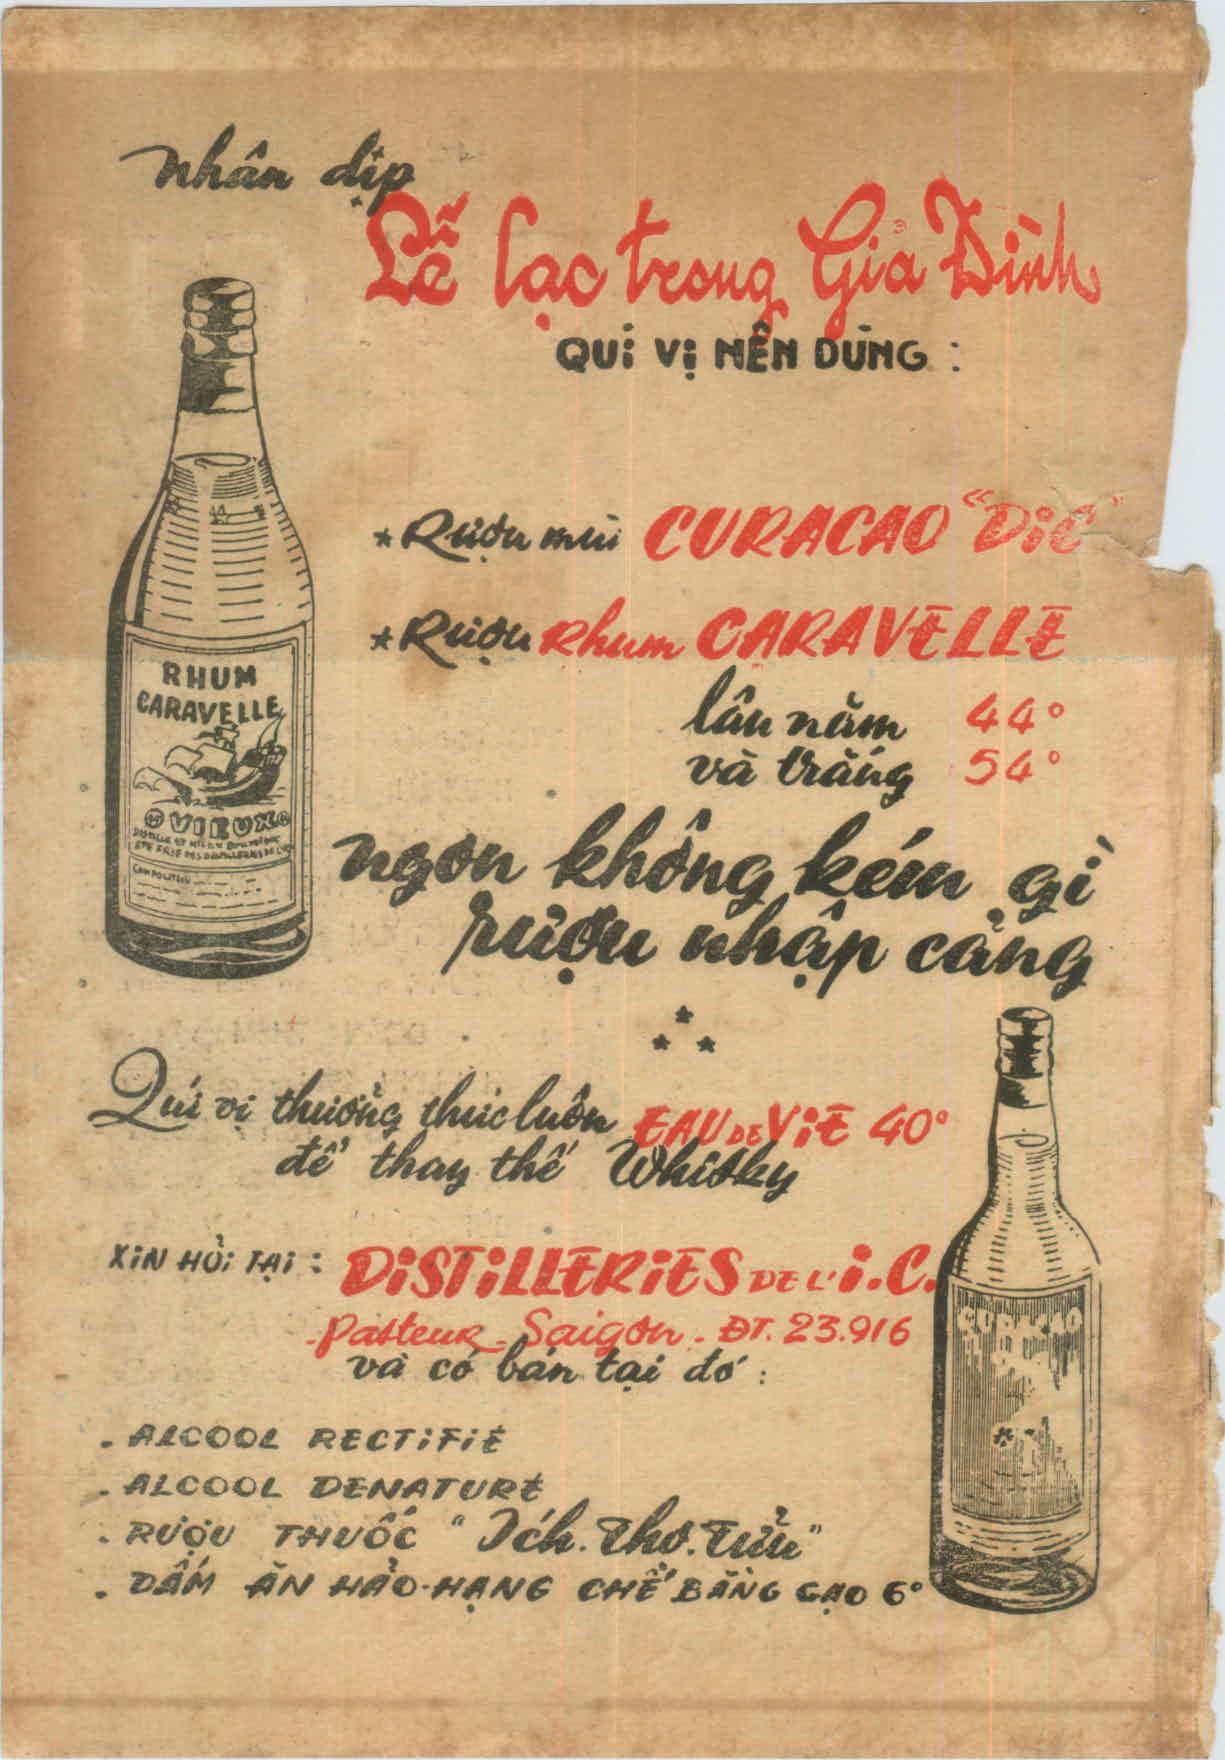 nhân dịp
Lễ lạc trong Gia Đình
QUí Vị NÊN DÙNG :
* Rượu mùi CURACAO "DiC"
* Rượu Rhum CARAVELLE
lâu năm 44°
và trắng 54°
ngon không kém gì
rượu nhập cảng
Quí vị thưởng thức luôn EAU DE ViE 40°
để thay thế Whisky
XiN HỎi TẠi : DiSTiLLERiES DE L'i.C.
- Pasteur - Saigon - ĐT. 23.916
và có bán tại đó :
. ALCOOL RECTiFiÉ
. ALCOOL DENATURÉ
. RƯỢU THUỐC "Ích.Thọ.Tửu"
. DẤM ĂN HẢO-HẠNG CHẾ BẰNG GẠO 6°
RHUM
CARAVELLE
VIEUX
CURACAO